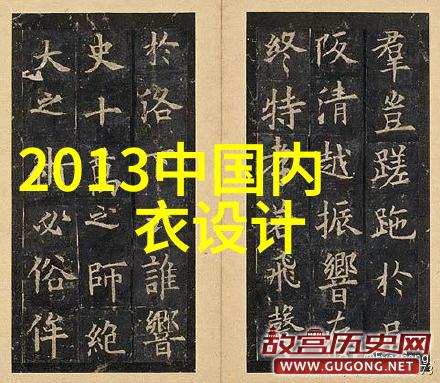 羣豈蹉跎於
阪清越振響
終特飛
於洛誰響
史十之師絶
大之必俗侔
2013中国内
衣设计
故宫历史网
WWW.GUGONG.NET